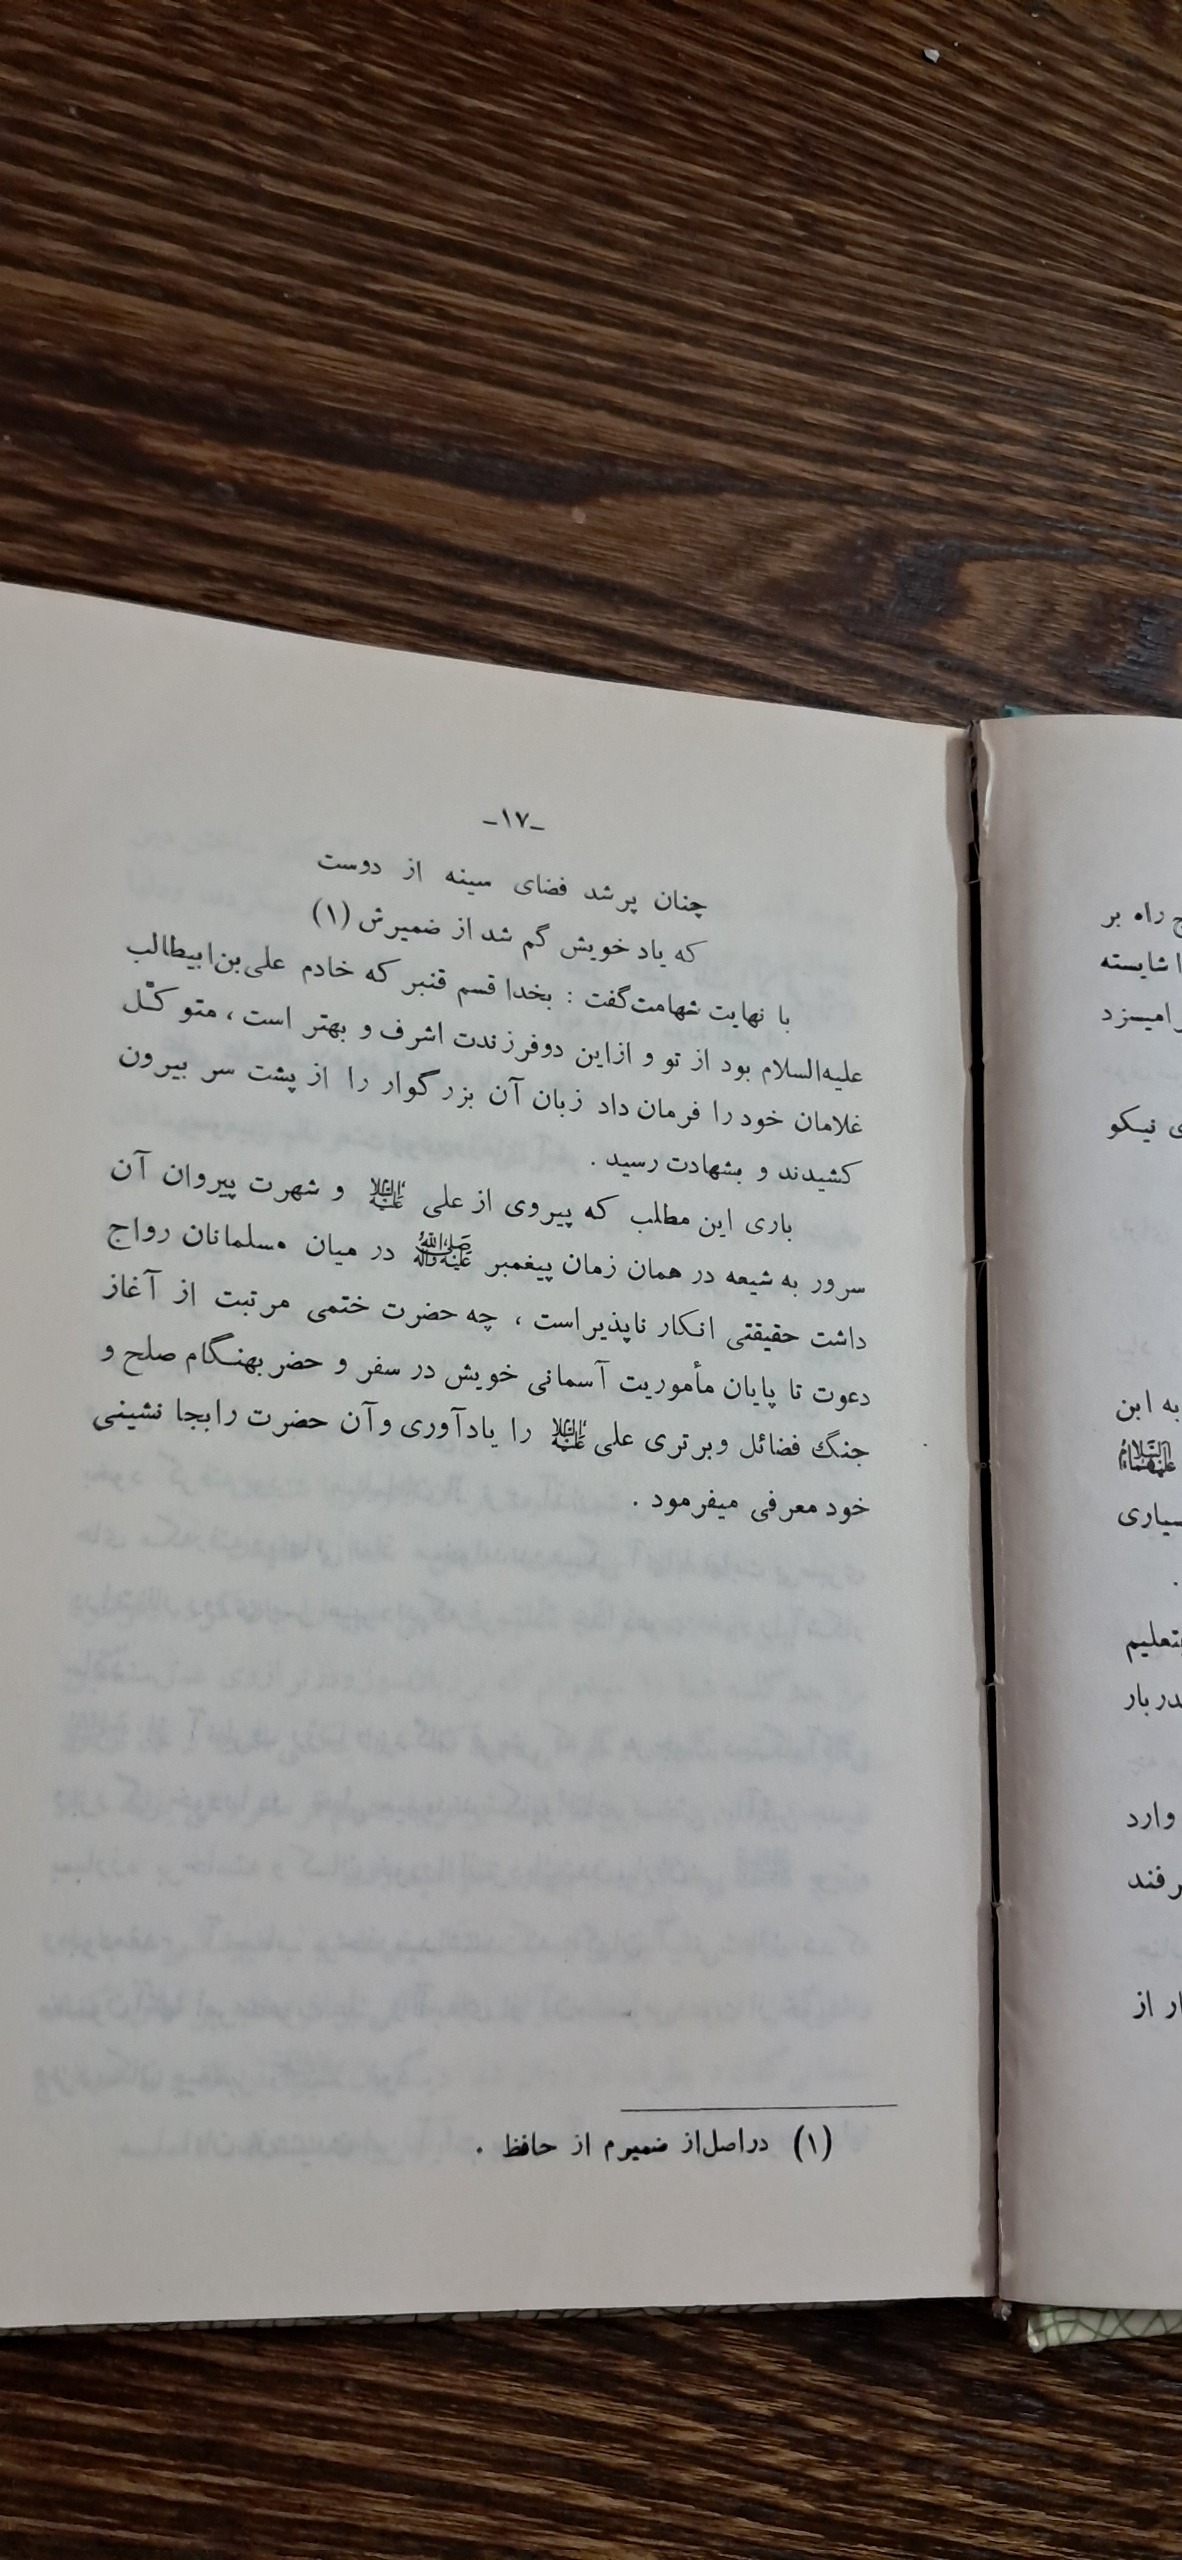 -۱۷-
چنان پرشد فضای سینه از دوست
که یاد خویش گم شد از ضمیرش (۱)
با نهایت شهامت گفت : بخدا قسم قنبر که خادم علی‌بن‌ابیطالب
علیه‌السلام بود از تو و از این دوفرزندت اشرف و بهتر است ، متوکّل
غلامان خود را فرمان داد زبان آن بزرگوار را از پشت سر بیرون
کشیدند و بشهادت رسید .
باری این مطلب که پیروی از علی علیه‌السلام و شهرت پیروان آن
سرور به شیعه در همان زمان پیغمبر صلی‌الله‌علیه‌وآله در میان مسلمانان رواج
داشت حقیقتی انکار ناپذیر است ، چه حضرت ختمی مرتبت از آغاز
دعوت تا پایان مأموریت آسمانی خویش در سفر و حضر بهنگام صلح و
جنگ فضائل و برتری علی علیه‌السلام را یادآوری و آن حضرت را بجا نشینی
خود معرفی میفرمود .
(۱) در اصل از ضمیرم از حافظ .
راه بر
شایسته
نیکو
به ابن
علیهماالسلام
وارد
از